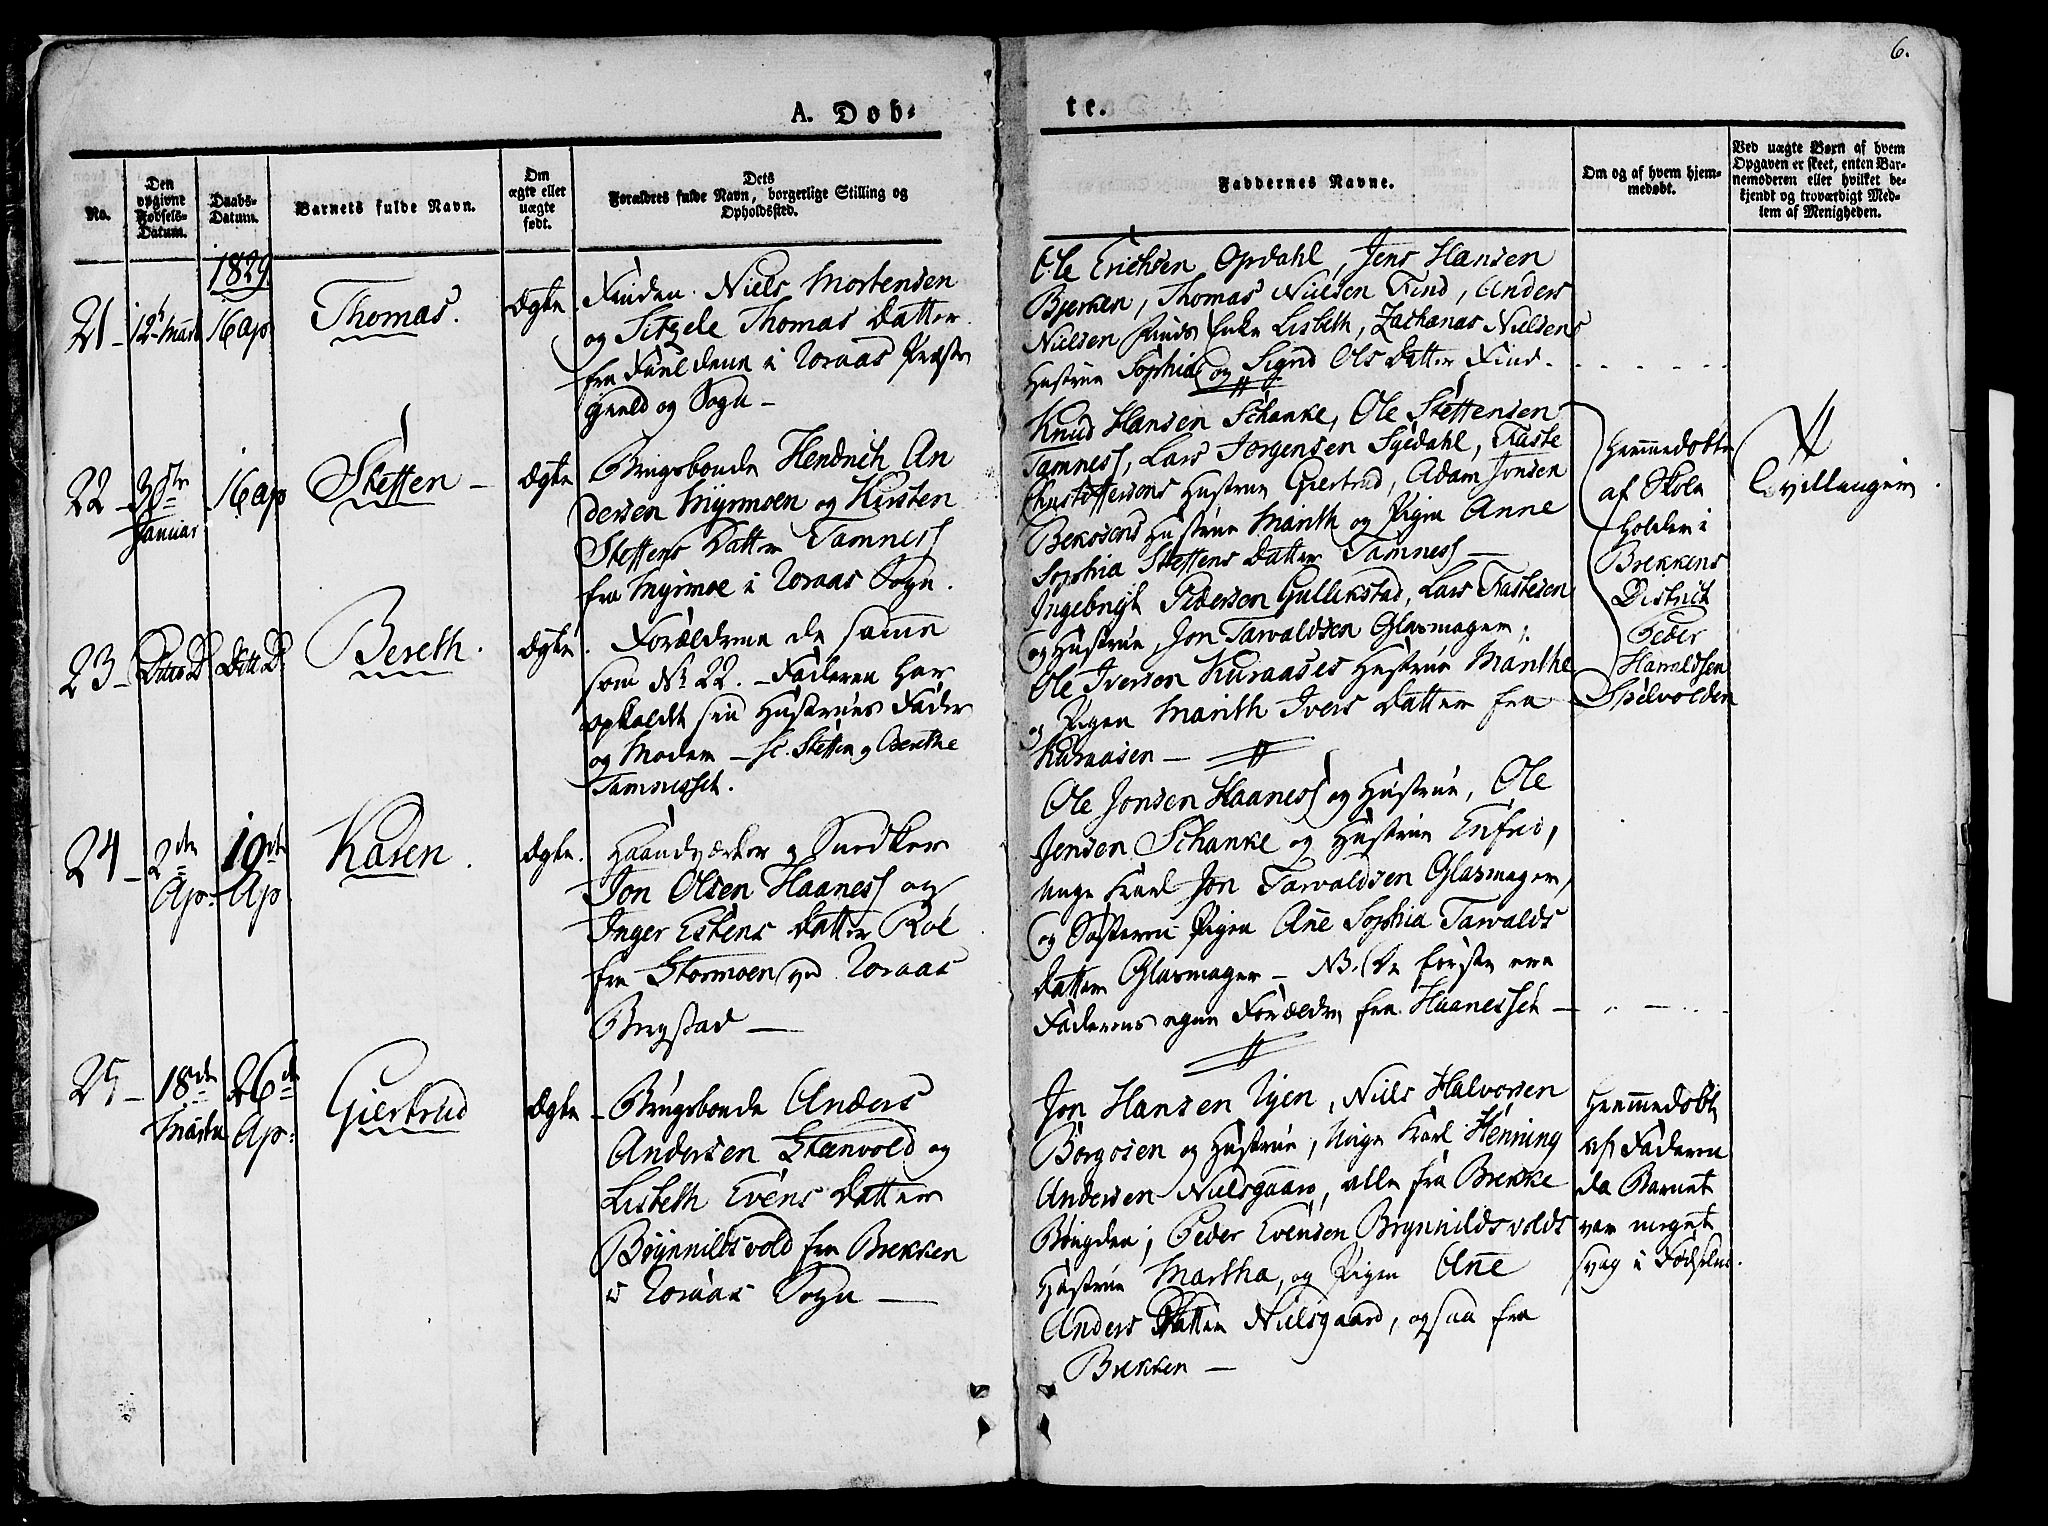 6.
A. Døb-
te.
No.
Den
opgivne
Fødsels-
Datum.
Daabs-
Datum.
Barnets fulde Navn.
Om
ægte eller
uægte
født.
Dets
Forældres fulde Navn, borgerlige Stilling og
Opholdssted.
Faddernes Navne.
Om og af hvem hjem-
medøbt.
Ved uægte Børn af hvem
Opgaven er skeet, enten Bar-
nemoderen eller hvilket be-
kjendt og troværdigt Med-
lem af Menigheden.
1829
21 -
12t Marts
16 Ap
Thomas.
Ægte.
Finden. Niels Mortensen
og Sitzele Thomas Datter
fra Fiældene i Røraas Præste
gjæld og Sogn -
Ole Erichsen Opdahl, Jens Hansen
Bjerken, Thomas Nielsen Find, Anders
Nielsen Finds Enke Lisbeth, Zacharias Nielsens
Hustrue Sophia og Sigrid Ols Datter Find.
22 -
30te
Januar
16 Ap
Steffen -
Ægte
Brugsbonde Hendrich An
dersen Myrmoen og Kirsten
Steffens Datter Tamness
fra Myrmoe i Røraas Sogn.
Knud Hansen Schanke, Ole Steffensen
Tamness, Lars Jørgensen Sysdahl, Faste
Christoffersens Hustrue Giertrud, Adam Jonsen
Bekosens Hustrue Marith og Pigen Anne
Sophia Steffens Datter Tamness -
Hiemmedøbte
af Skole
holder i
Brekkens
District
Peder
Haraldsen
Spelvolden
Tvillinger.
23 -
Ditto D
Ditt D
Bereth.
Ægte.
Forældrene de samme
som No 22. - Faderen har
opkaldt sin Hustrues Fader
og Moder - sc. Steffen og Berethe
Tamnesset.
Ingebrigt Pedersen Gullikstad, Lars Fastesen
og Hustrue, Jon Tarvaldsen Glasmager;
Ole Iversen Kuraases Hustrue Marithe
og Pigen Marith Ivers Datter fra
Kuraasen -
24 -
2den
Ap:
10de
Ap
Karen.
Ægte.
Haandværker og Snedker
Jon Olsen Haaness og
Inger Eskens Datter Røe
fra Stormoen ved Røraas
Bergstad -
Ole Jonsen Haaness og Hustrue, Ole
Jensen Schanke og Hustrue Enfrid,
Unge Karl Jon Tarvaldsen Glasmager,
og Søsteren Pigen Ane Sophia Tarvalds
Datter Glasmager - NB. De første ere
Faderens egne Forældre fra Haanesset -
25 -
18de
Martii
26de
Ap:
Giertrud
Ægte -
Brugsbonde Anders
Andersen Stenvold og
Lisbeth Evens Datter
Brynnildsvold fra Brekken
i Røraas Sogn -
Jon Hansen Ryen, Niels Halvorsen
Borgosen og Hustrue, Unge Karl Henning
Andersen Nielsgaard, alle fra Brekke
Bøigden; Peder Evensen Brynnildsvolds
Hustrue Martha, og Pigen Ane
Anders Datter Nielsgaard, ogsaa fra
Brekken -
Hiemmedøbt
af Faderen
da Barnet
var meget
svag i Fødselen.